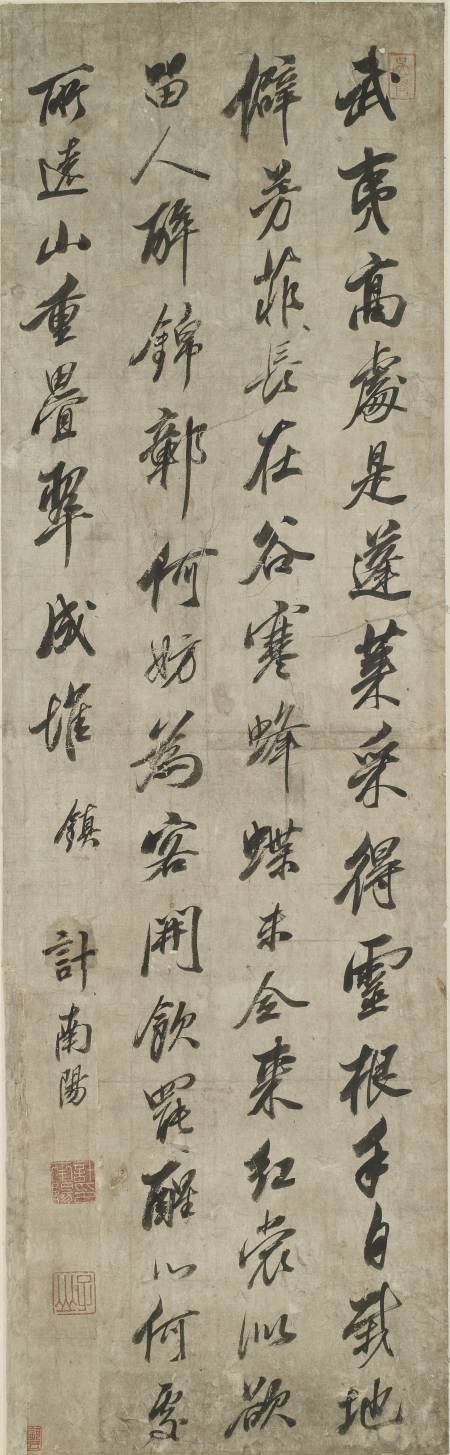 武夷高處是蓬萊采得靈根手自栽地
僻芳菲長在谷寒蜂蝶未全來紅裳似欲
留人醉錦鄣何妨為客開飲罷醒心何處
所遠山重疊翠成堆 鎮
計南陽